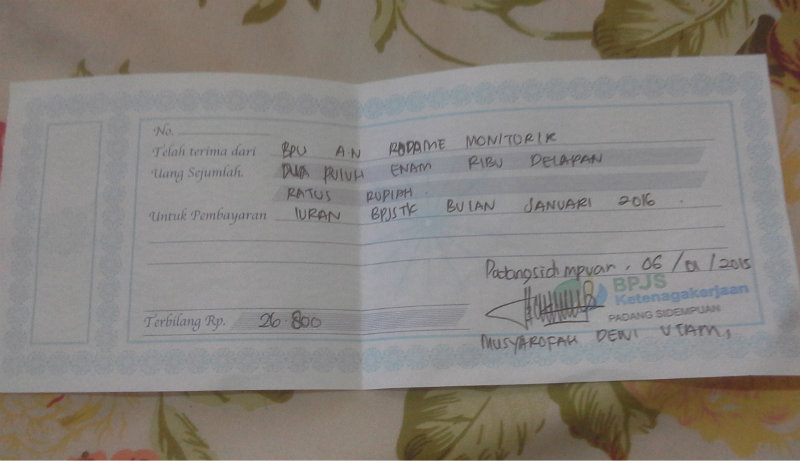 No.
Telah terima dari BPU A.N RODAME MONITORIK
Uang Sejumlah. DUA PULUH ENAM RIBU DELAPAN
RATUS RUPIAH
Untuk Pembayaran IURAN BPJSTK BULAN JANUARI 2016
Padangsidimpuan, 06/01/2015
BPJS
Ketenagakerjaan
PADANG SIDEMPUAN
Terbilang Rp. 26.800
MUSYAROFAH DEWI UTAMI